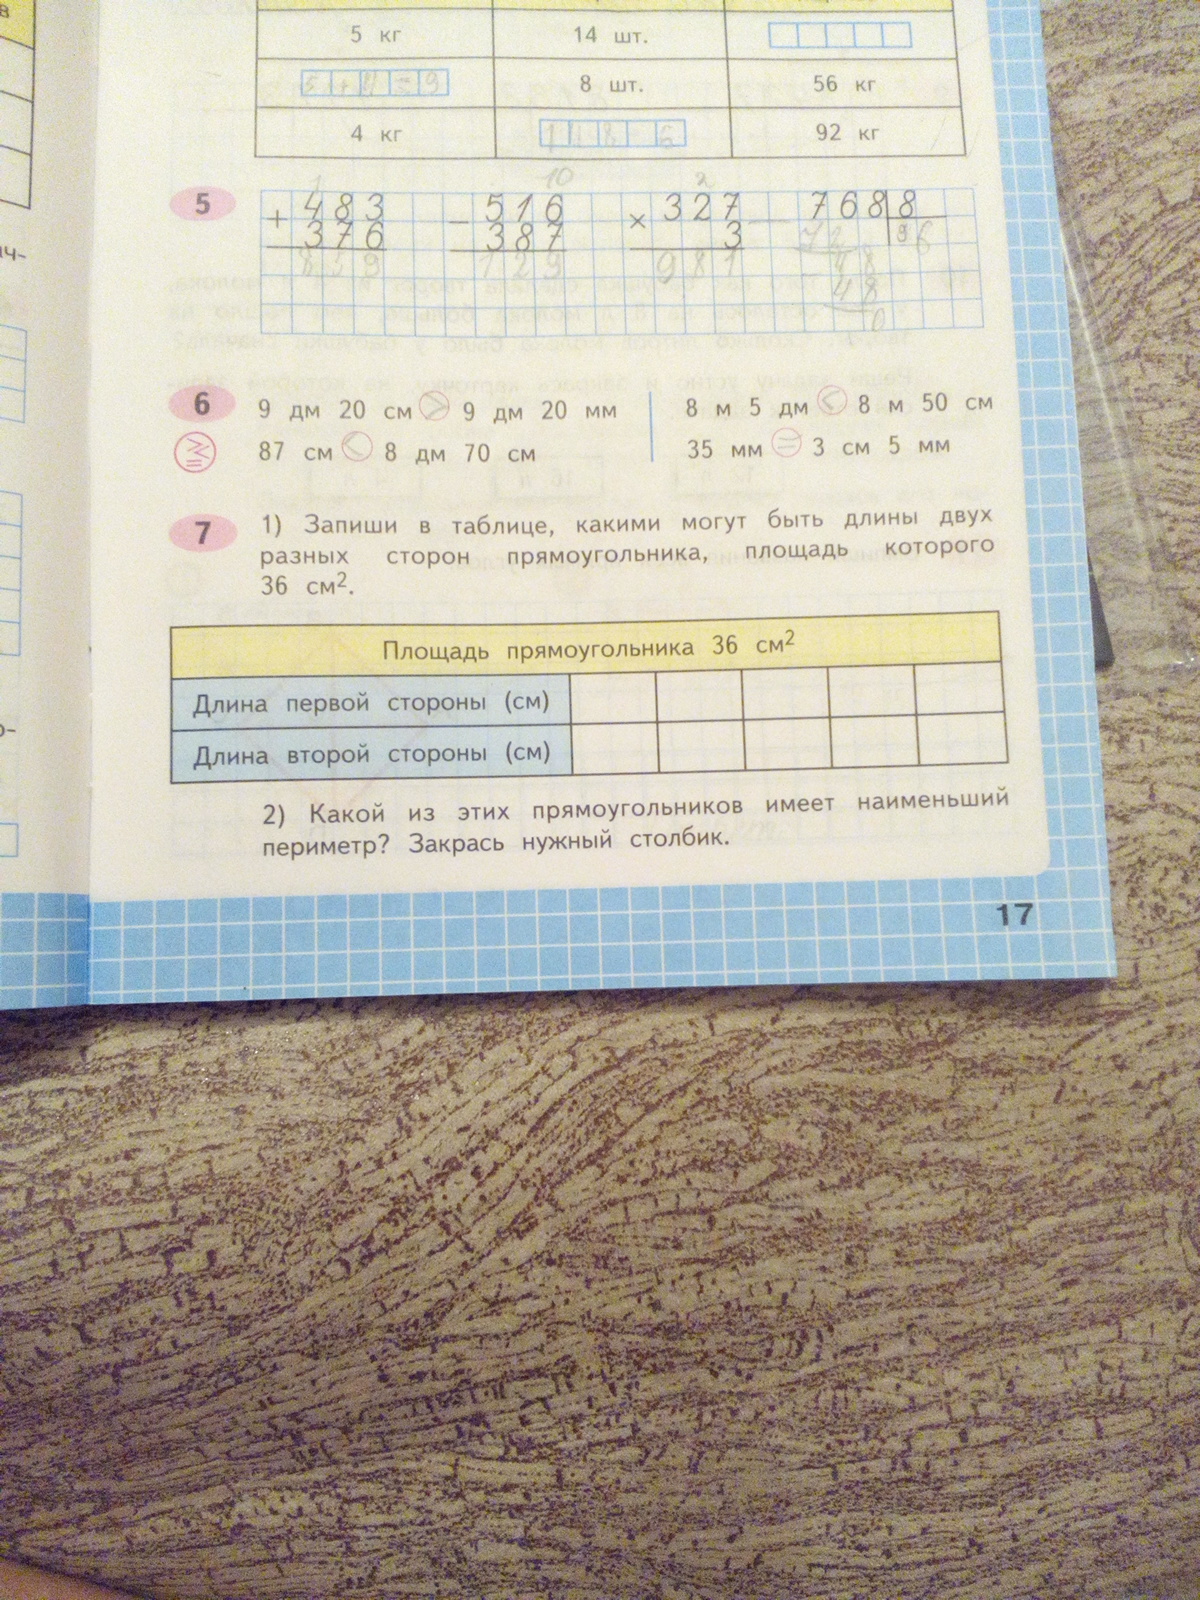 в
5 кг 14 шт.
5 + 4 = 9 8 шт. 56 кг
4 кг 92 кг
5
1 10 2
+ 483 − 516 × 327 − 768 8
376 387 3 72 96
859 129 981 48
48
0
ич-
6 9 дм 20 см > 9 дм 20 мм 8 м 5 дм < 8 м 50 см
87 см < 8 дм 70 см 35 мм = 3 см 5 мм
7 1) Запиши в таблице, какими могут быть длины двух
разных сторон прямоугольника, площадь которого
36 см².
Площадь прямоугольника 36 см²
Длина первой стороны (см)
Длина второй стороны (см)
2) Какой из этих прямоугольников имеет наименьший
периметр? Закрась нужный столбик.
17